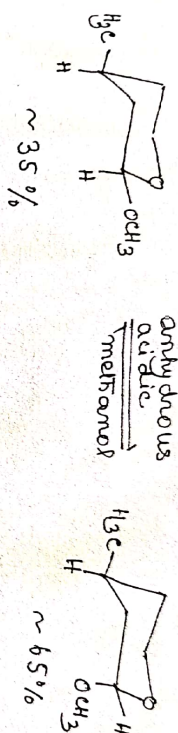 H₃C
H
H
O
OCH₃
~ 35%
anhydrous
acidic
methanol
H₃C
H
O
H
OCH₃
~ 65%